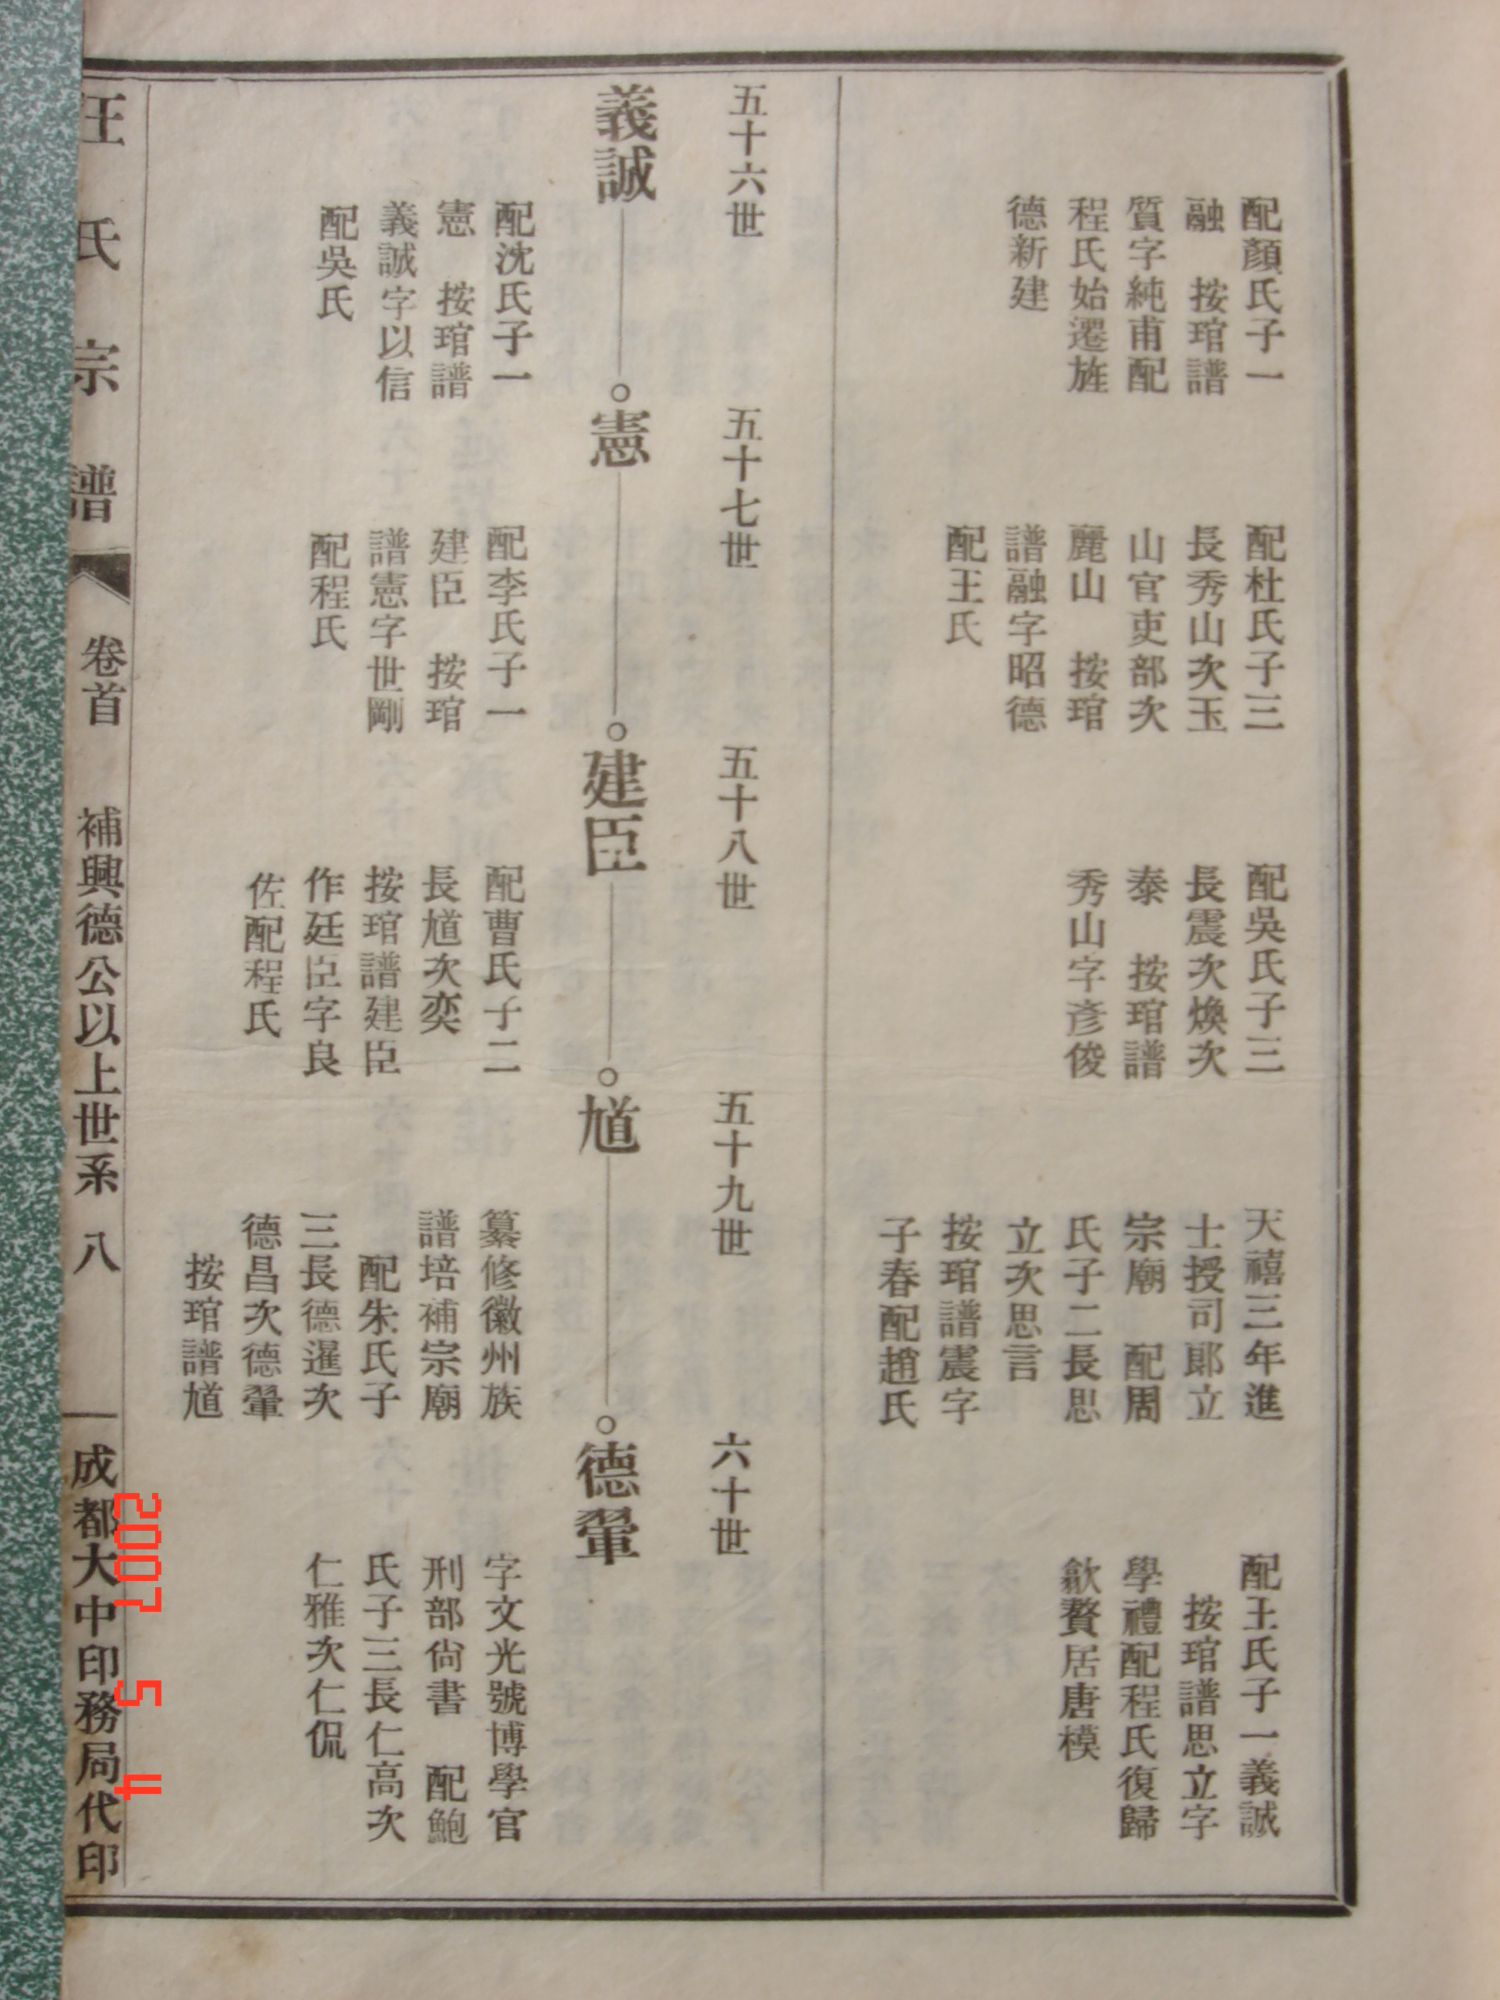 配顏氏子一
融　按琯譜
質字純甫配
程氏始遷旌
德新建
配杜氏子三
長秀山次玉
山官吏部次
麗山　按琯
譜融字昭德
配王氏
配吳氏子三
長震次煥次
泰　按琯譜
秀山字彥俊
天禧三年進
士授司郎立
宗廟　配周
氏子二長思
立次思言
按琯譜震字
子春配趙氏
配王氏子一義誠
按琯譜思立字
學禮配程氏復歸
歙贅居唐模
五十六世
五十七世
五十八世
五十九世
六十世
義誠
憲
建臣
馗
德翬
配沈氏子一
憲　按琯譜
義誠字以信
配吳氏
配李氏子一
建臣　按琯
譜憲字世剛
配程氏
配曹氏子二
長馗次奕
按琯譜建臣
作廷臣字良
佐配程氏
纂修徽州族
譜培補宗廟
配朱氏子
三長德暹次
德昌次德翬
按琯譜馗
字文光號博學官
刑部尙書　配鮑
氏子三長仁高次
仁雅次仁侃
汪氏宗譜
卷首
補興德公以上世系
八
成都大中印務局代印
2007 5 4